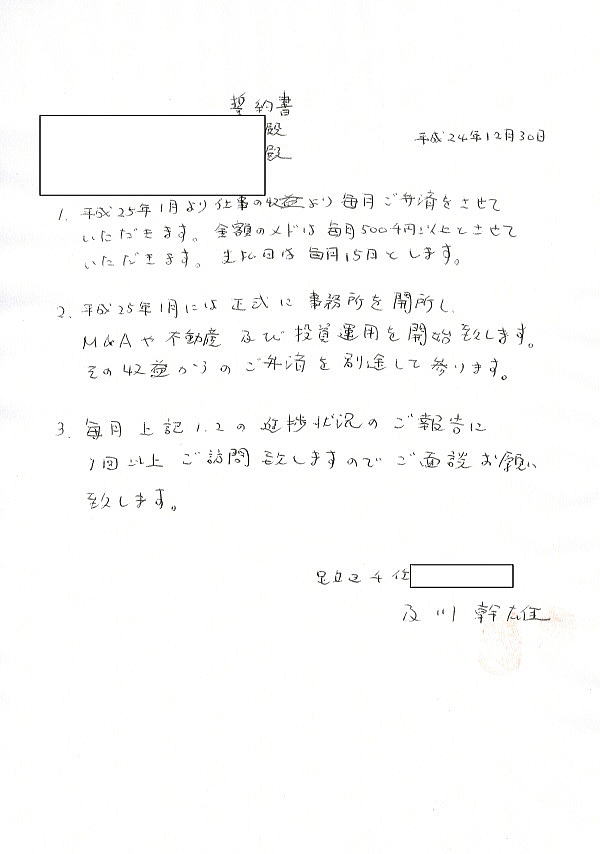 誓約書
殿
殿
平成24年12月30日
1. 平成25年1月より仕事の収益より毎月ご弁済をさせて
いただきます。金額のメドは毎月500千円以上とさせて
いただきます。支払日は毎月15日とします。
2. 平成25年1月には正式に事務所を開所し、
M&Aや不動産及び投資運用を開始致します。
その収益からのご弁済を別途して参ります。
3. 毎月上記1.2の進捗状況のご報告に
1回以上ご訪問致しますのでご面談お願い
致します。
足立区千住
及川幹雄